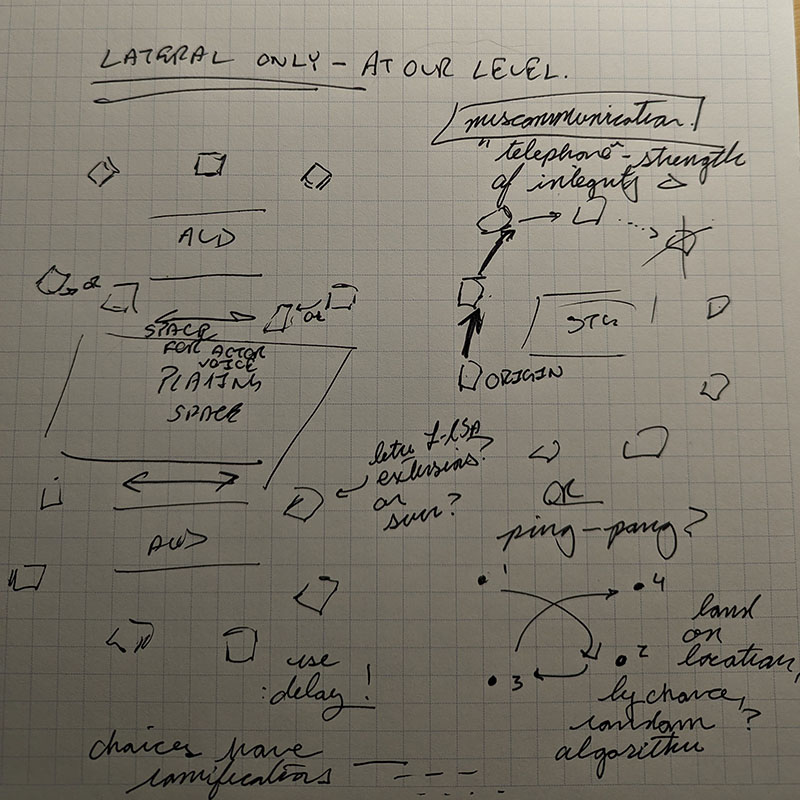 LATERAL ONLY – AT OUR LEVEL.
miscommunication.
"telephone" – strength
of integrity
AUD
or
or
SPACE
FOR ACTOR
VOICE
PLAYING
SPACE
STG
ORIGIN
extension?
or
surr?
AUD
OR
ping-pong?
1
4
2
3
land
on
location,
by chance,
random ?
algorithm
use
delay!
choices have
ramifications